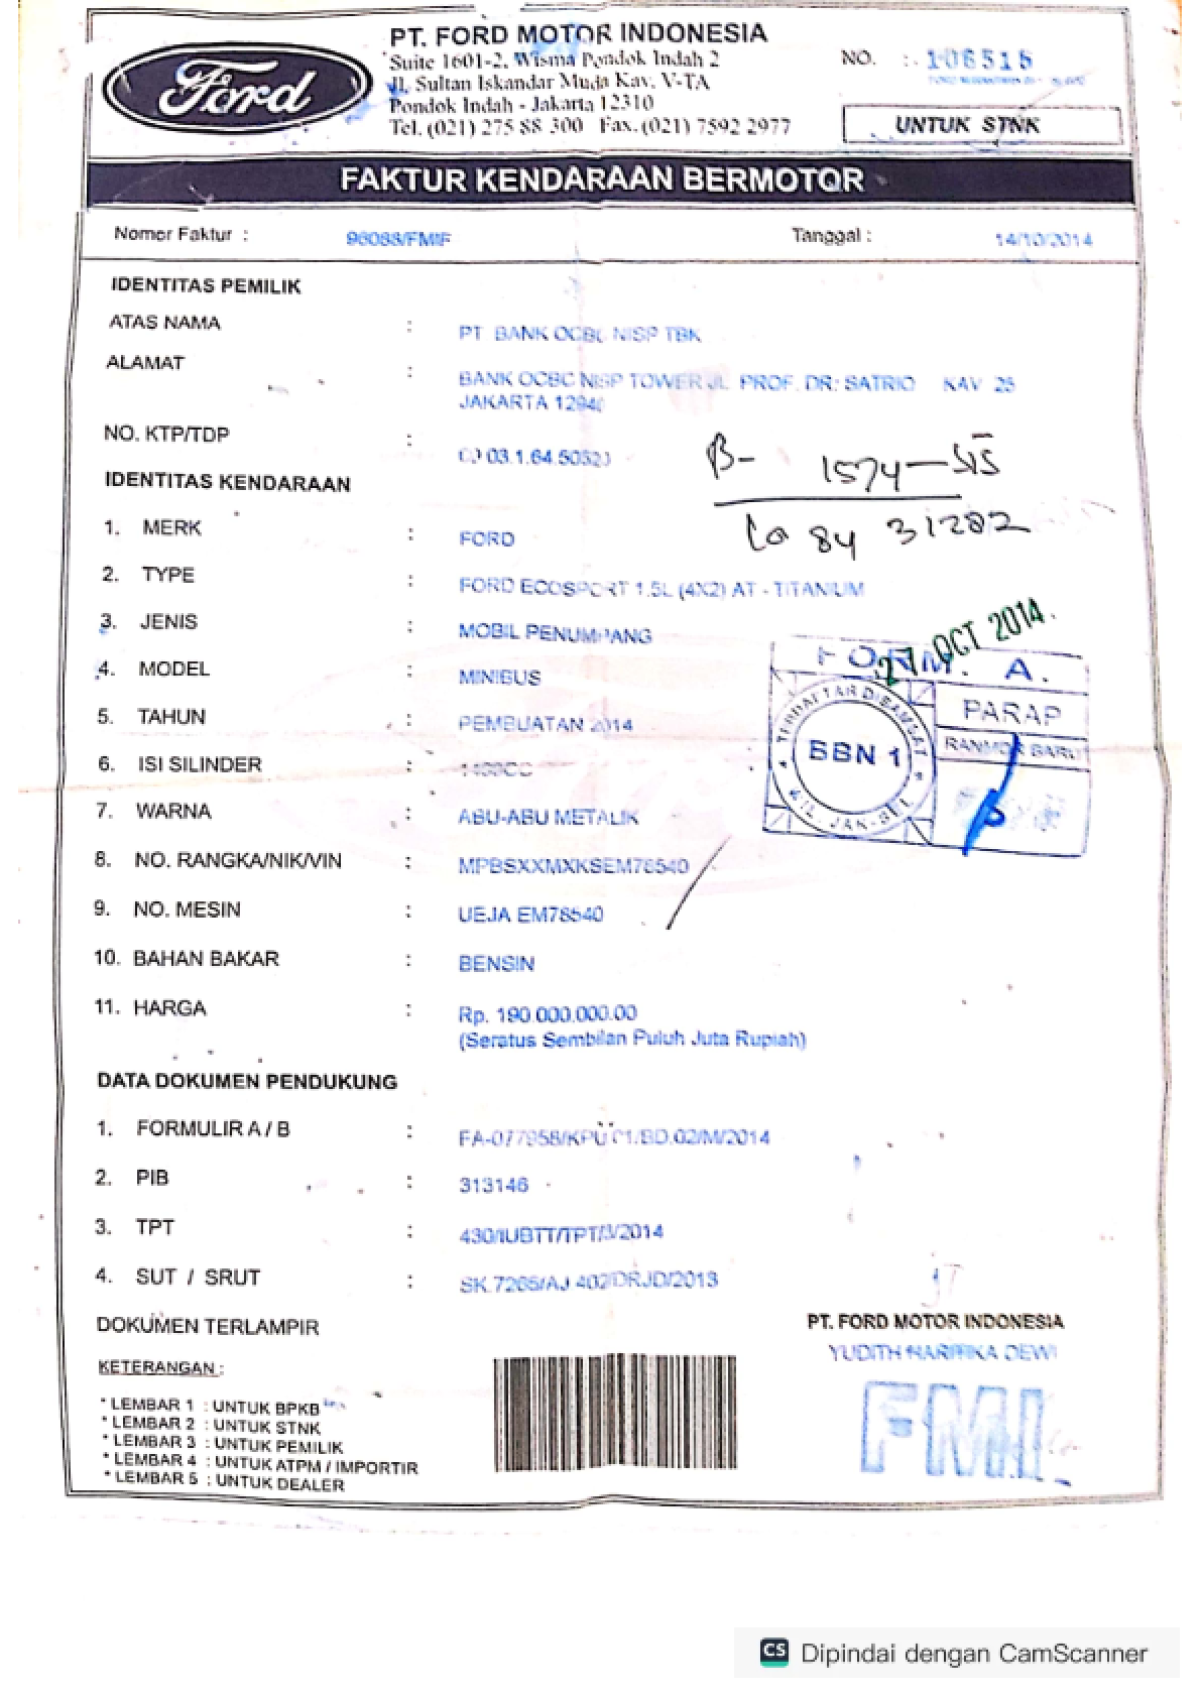 Ford
PT. FORD MOTOR INDONESIA
Suite 1601-2, Wisma Pondok Indah 2
Jl. Sultan Iskandar Muda Kav. V-TA
Pondok Indah - Jakarta 12310
Tel. (021) 275 88 300 Fax. (021) 7592 2977
NO. : 106515
UNTUK STNK
FAKTUR KENDARAAN BERMOTOR
Nomor Faktur : 96088/FMIF
Tanggal : 14/10/2014
IDENTITAS PEMILIK
ATAS NAMA : PT BANK OCBC NISP TBK
ALAMAT : BANK OCBC NISP TOWER JL. PROF. DR. SATRIO KAV 25
JAKARTA 12940
NO. KTP/TDP :
B- 1574-SIS
84 31282
IDENTITAS KENDARAAN
1. MERK : FORD
2. TYPE : FORD ECOSPORT 1.5L (4X2) AT - TITANIUM
3. JENIS : MOBIL PENUMPANG
4. MODEL : MINIBUS
5. TAHUN : PEMBUATAN 2014
6. ISI SILINDER :
7. WARNA : ABU-ABU METALIK
8. NO. RANGKA/NIK/VIN : MPBSXXMXKSEM78540
9. NO. MESIN : UEJA EM78540
10. BAHAN BAKAR : BENSIN
11. HARGA : Rp. 190.000.000.00
(Seratus Sembilan Puluh Juta Rupiah)
27 OCT 2014.
FORM. A.
TERDAFTAR DISAMSAT
BBN 1
WIL. JAK-SEL
PARAP
RANMOR BARU
DATA DOKUMEN PENDUKUNG
1. FORMULIR A / B : FA-077958/KPU 01/BD.02/M/2014
2. PIB : 313146
3. TPT : 430/IUBTT/TPT/3/2014
4. SUT / SRUT : SK.7265/AJ 402/DRJD/2013
DOKUMEN TERLAMPIR
PT. FORD MOTOR INDONESIA
YUDITH HARTIKA DEWI
FMI
KETERANGAN :
* LEMBAR 1 : UNTUK BPKB
* LEMBAR 2 : UNTUK STNK
* LEMBAR 3 : UNTUK PEMILIK
* LEMBAR 4 : UNTUK ATPM / IMPORTIR
* LEMBAR 5 : UNTUK DEALER
CS Dipindai dengan CamScanner